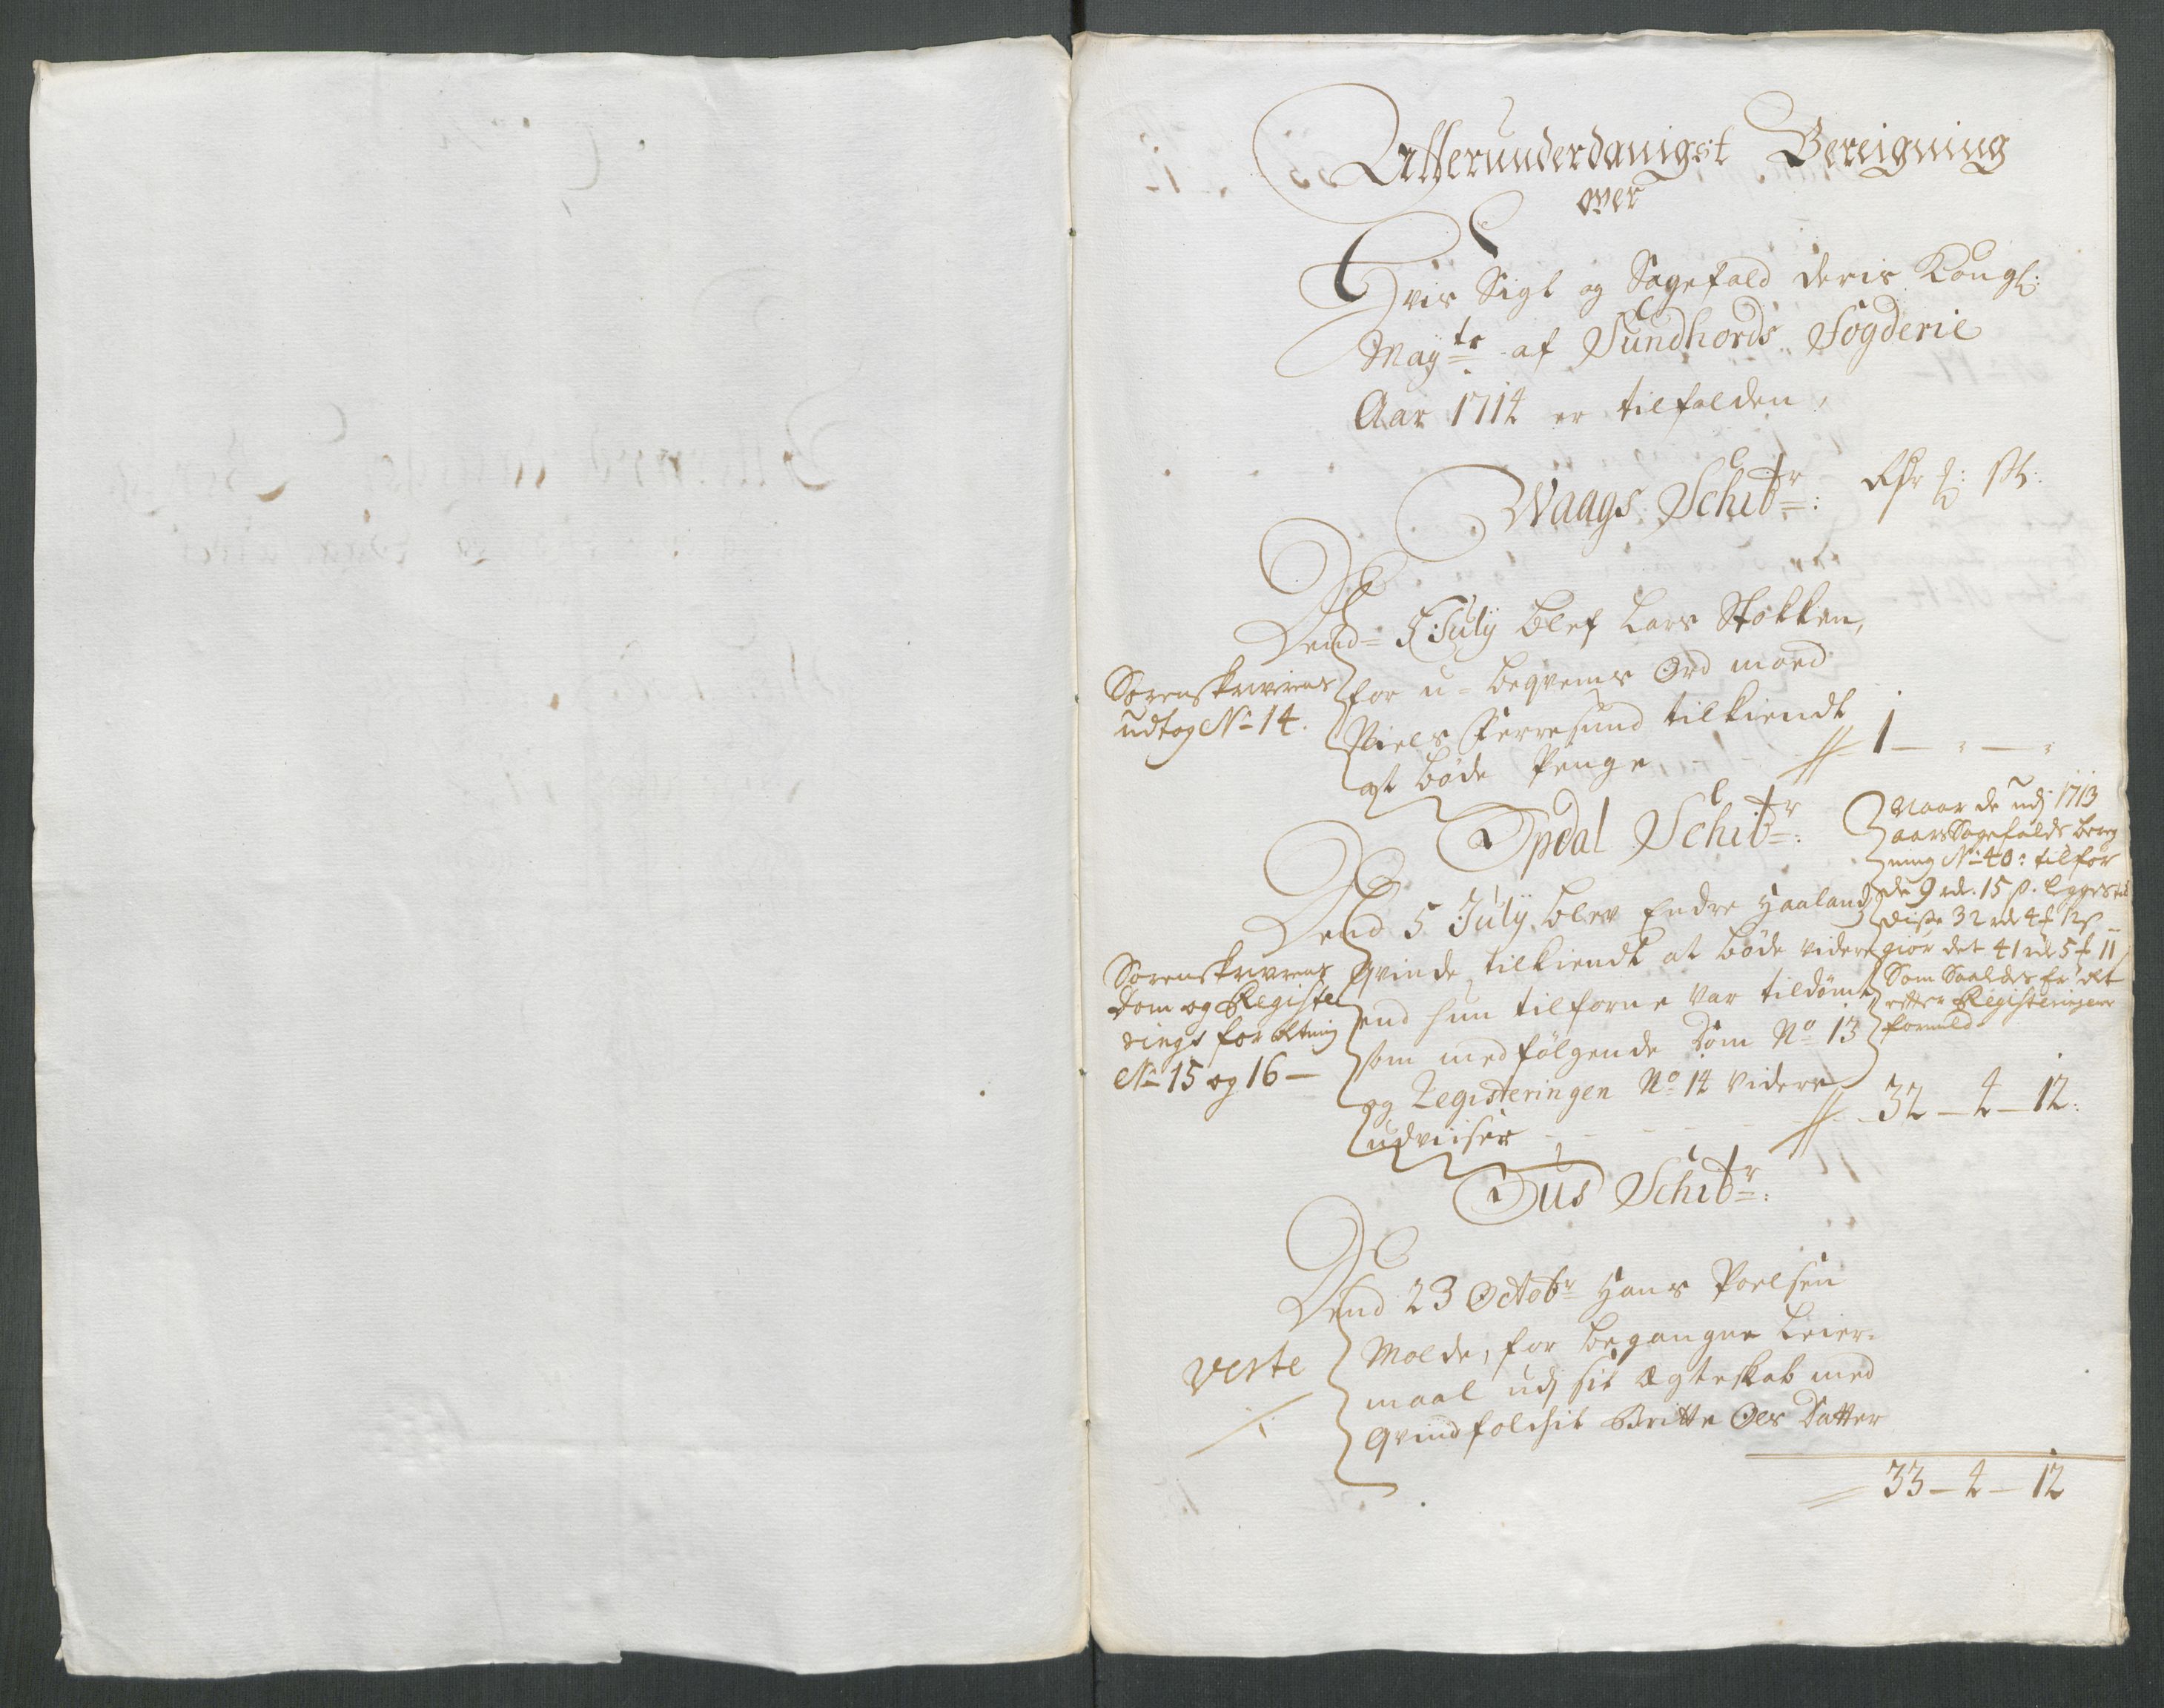 Allerunderdanigst Bereigning
over
Hvis Sigt og Sagefald deris Kongl:
Mayts af Sundhords Fogderie
Aar 1714 er tilfalden,
Waags Schibr: Rdr ʒ: ß:
Dend 5 July blef Lars Stokken,
for u-beqvems Ord moed
Niels Færresund tilkiendt
at bøde Penge 1 - " - "
Sorenskrivrens
udtog No 14.
Opdal Schibr:
Dend 5 July blev Endre Haalands
qvinde tilkiendt at bøde videre
end hun tilforne var tildømt
som medfølgende Dom No 13
og Registeringen No 14 videre
udviiser 32 - 4 - 12:
Sorenskrivrens
dom og Registe
rings forretning
No 15 og 16 -
Naar de udj 1713
aars Sagefalds bereg
ning No 40: tilfør
de 9 rdr. 15 ß. legges til
disse 32 rdr 4 ʒ 12 ß
giør det 41 rdr 5 ʒ 11
Som Saaledes er ret
efter Registeringens
formeld
Øus Schibr:
Dend 23 Octobr Hans Poelsen
Molde, for begangne Leier-
maal udj sit Ægteskab med
qvindfolchit Britte Ols Datter
Verte
33 - 4 - 12